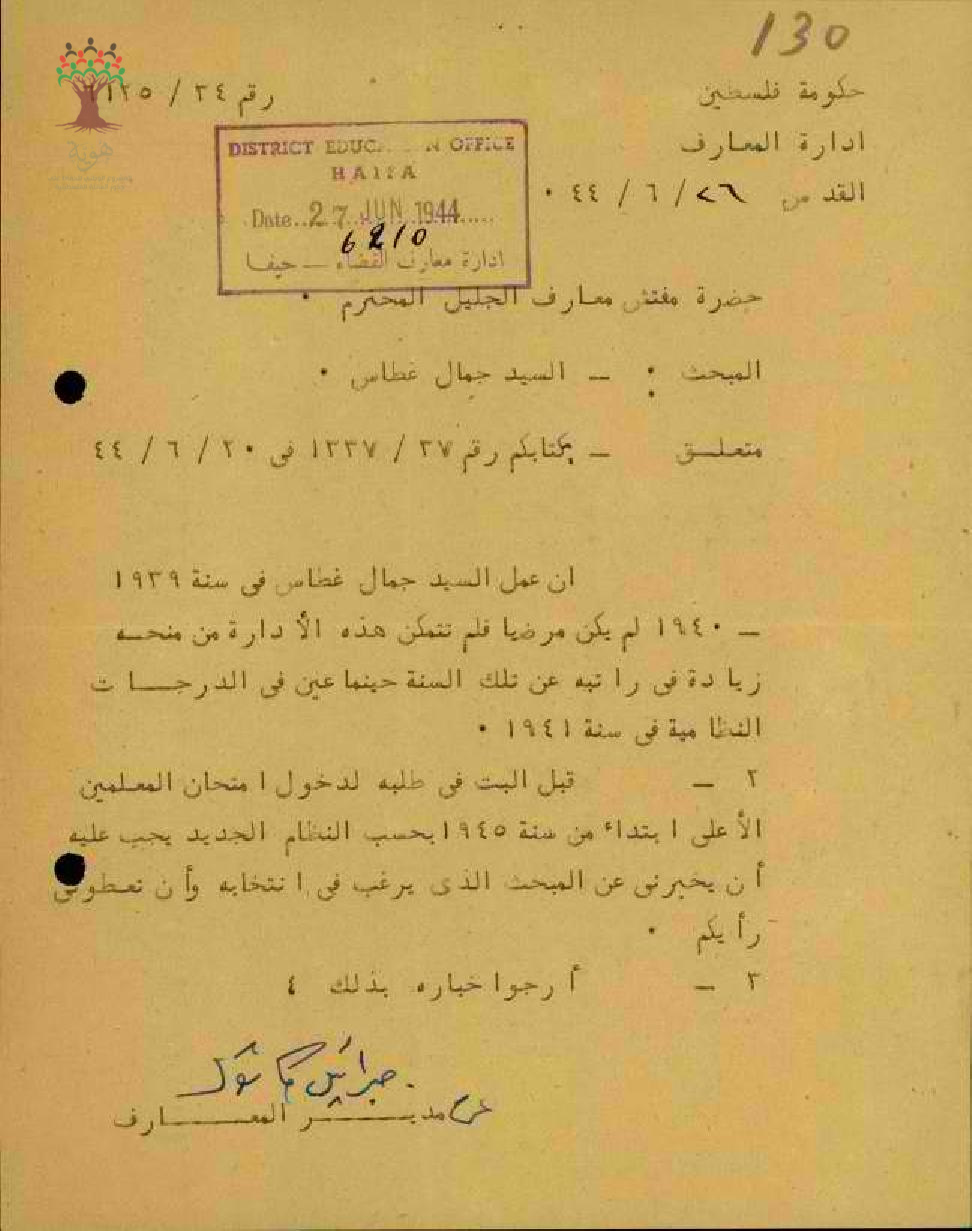 130
حكومة فلسطين
رقم ٢٤ / ١١٢٥
ادارة المعارف
القدس ٢٦ / ٦ / ٤٤ ٠
هوية
DISTRICT EDUCA N OFFICE
HAIFA
Date 27 JUN 1944
6210
ادارة معارف القضاء – حيفا
حضرة مفتش معارف الجليل المحترم ٠
المبحث : – السيد جمال غطاس ٠
متعلق – بكتابكم رقم ٢٧ / ١٣٣٧ فى ٢٠ / ٦ / ٤٤
ان عمل السيد جمال غطاس فى سنة ١٩٣٩
– ١٩٤٠ لم يكن مرضيا فلم تتمكن هذه الأدارة من منحه
زيادة فى راتبه عن تلك السنة حينما عين فى الدرجات
النظامية فى سنة ١٩٤١ ٠
٢ – قبل البت فى طلبه لدخول امتحان المعلمين
الأعلى ابتداء من سنة ١٩٤٥ بحسب النظام الجديد يجب عليه
أن يخبرنى عن المبحث الذى يرغب فى انتخابه وأن تعطونى
رأيكم ٠
٣ – أرجو اخباره بذلك ٤
جبرائيل كاتول
عن مدير المعارف